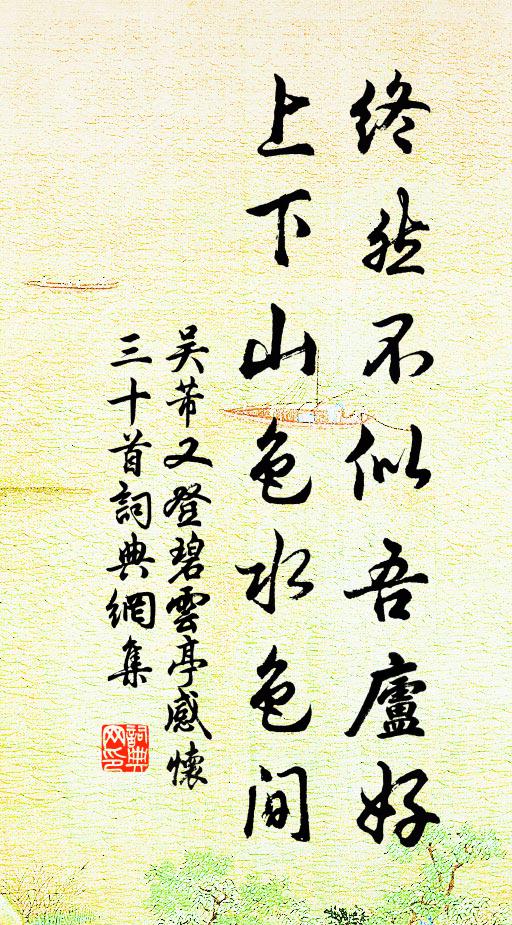 終然不似吾廬好
上下山色水色間
吳芾又登碧雲亭感懷
三十首詞典網集
詞典
网印